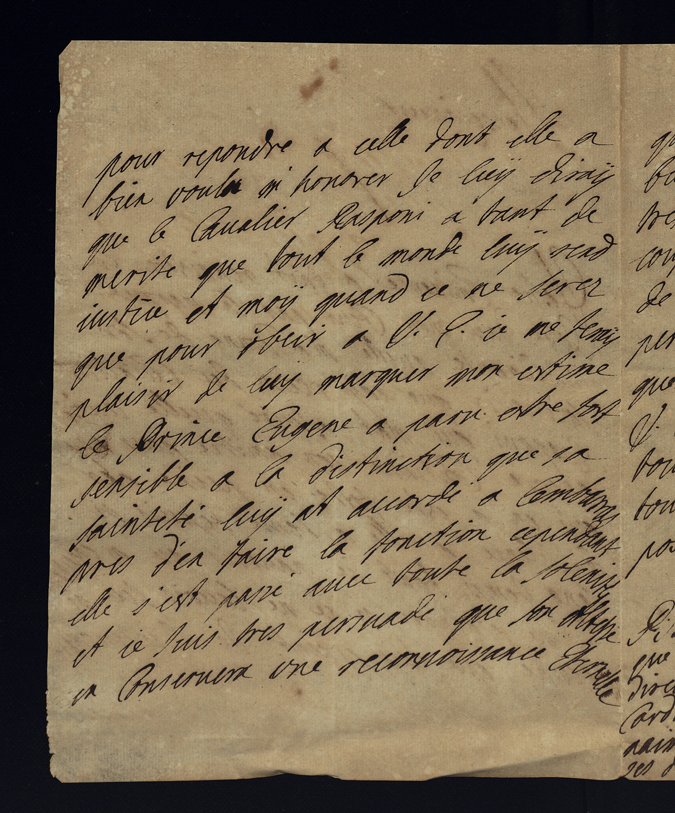 pour repondre a celle dont elle a
bien voulu m'honorer Je luÿ diraÿ
que le Cavalier Rasponi a tant de
merite que tout le monde luÿ rend
iustice et moÿ quand ce ne serez
que pour obeir a V. E. ie me feraÿ
plaisir de luÿ marquer mon estime
le Prince Eugene a paru estre fort
sensible a la distinction que sa
sainteté luÿ at accordé a
pres d'en faire la fonction cependant
elle s'est passé avec toute la
et ie suis tres persuadé que son Altesse
en Conservera une reconnoissance Eternelle